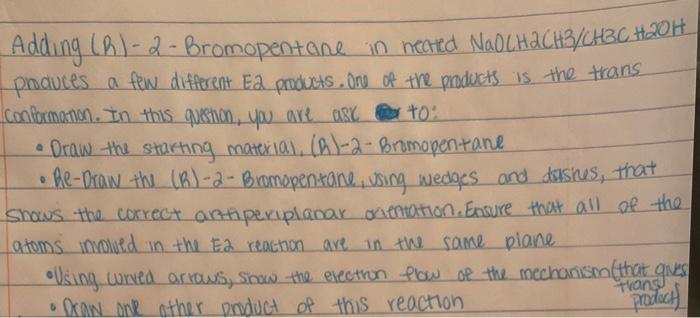 Adding (R)-2-Bromopentane in heated NaOCH2CH3/CH3CH2OH
produces a few different E2 products. One of the products is the trans
conformation. In this question, you are ask to:
• Draw the starting material, (R)-2-Bromopentane
• Re-Draw the (R)-2-Bromopentane, using wedges and dashes, that
shows the correct antiperiplanar orientation. Ensure that all of the
atoms involved in the E2 reaction are in the same plane
• Using curved arrows, show the electron flow of the mechanism (that gives
trans product)
• Draw one other product of this reaction